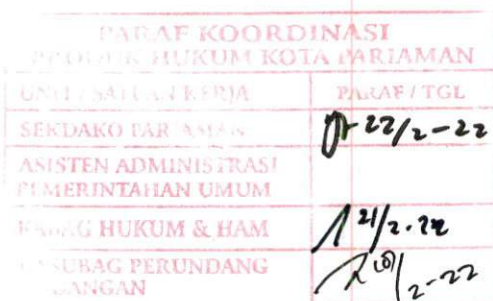 PARAF KOORDINASI
PRODUK HUKUM KOTA PARIAMAN
UNIT / SATUAN KERJA PARAF / TGL
SEKDAKO PARIAMAN 22/2-22
ASISTEN ADMINISTRASI
PEMERINTAHAN UMUM
KABAG HUKUM & HAM 21/2-22
KASUBAG PERUNDANG
UNDANGAN /2-22